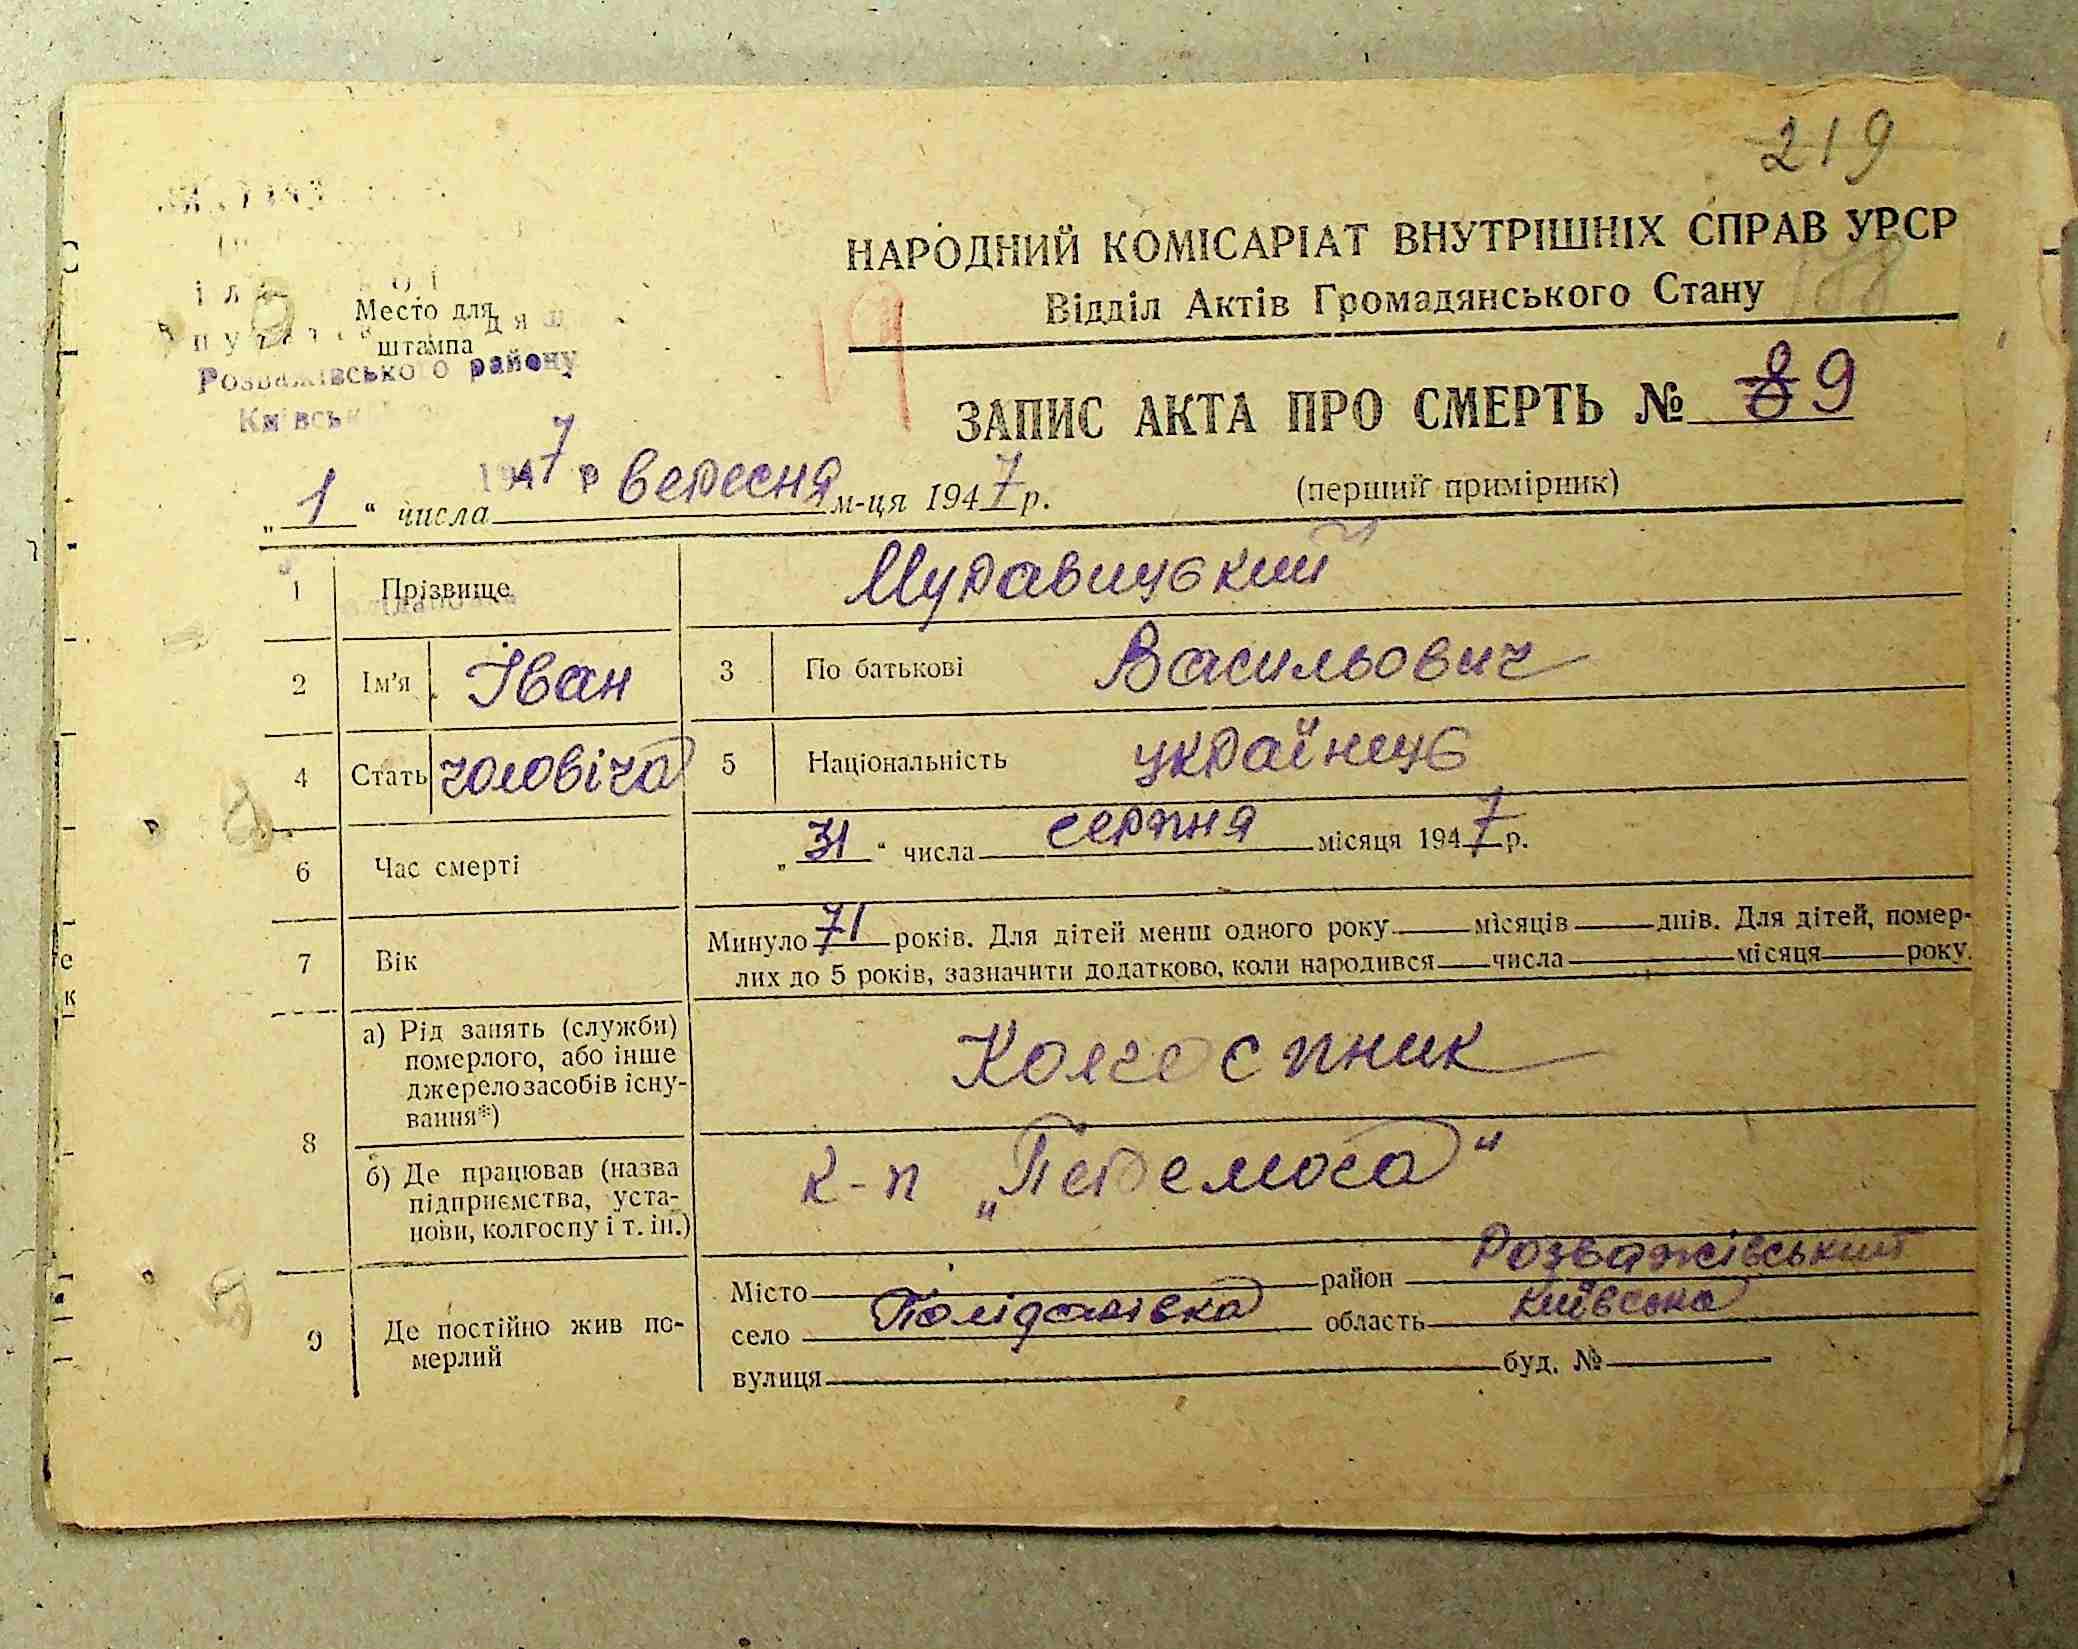 219
НАРОДНИЙ КОМІСАРІАТ ВНУТРІШНІХ СПРАВ УРСР
188
Відділ Актів Громадянського Стану
Место для
штампа
Розважівського району
Київськ
ЗАПИС АКТА ПРО СМЕРТЬ № 89
(перший примірник)
1947 р
„1“ числа вересня м-ця 1947 р.
1 Прізвище Муравицький
2 Ім'я Іван 3 По батькові Васильович
4 Стать чоловіча 5 Національність українець
6 Час смерті „31“ числа серпня місяця 1947 р.
7 Вік Минуло 71 років. Для дітей менш одного року місяців днів. Для дітей, помер-
лих до 5 років, зазначити додатково, коли народився числа місяця року.
8 а) Рід занять (служби)
померлого, або інше
джерело засобів існу-
вання*)
Колгоспник
б) Де працював (назва
підприємства, уста-
нови, колгоспу і т. ін.)
к-п „Перемога“
9 Де постійно жив по-
мерлий
Місто район Розважівський
село область Київська
вулиця буд. №